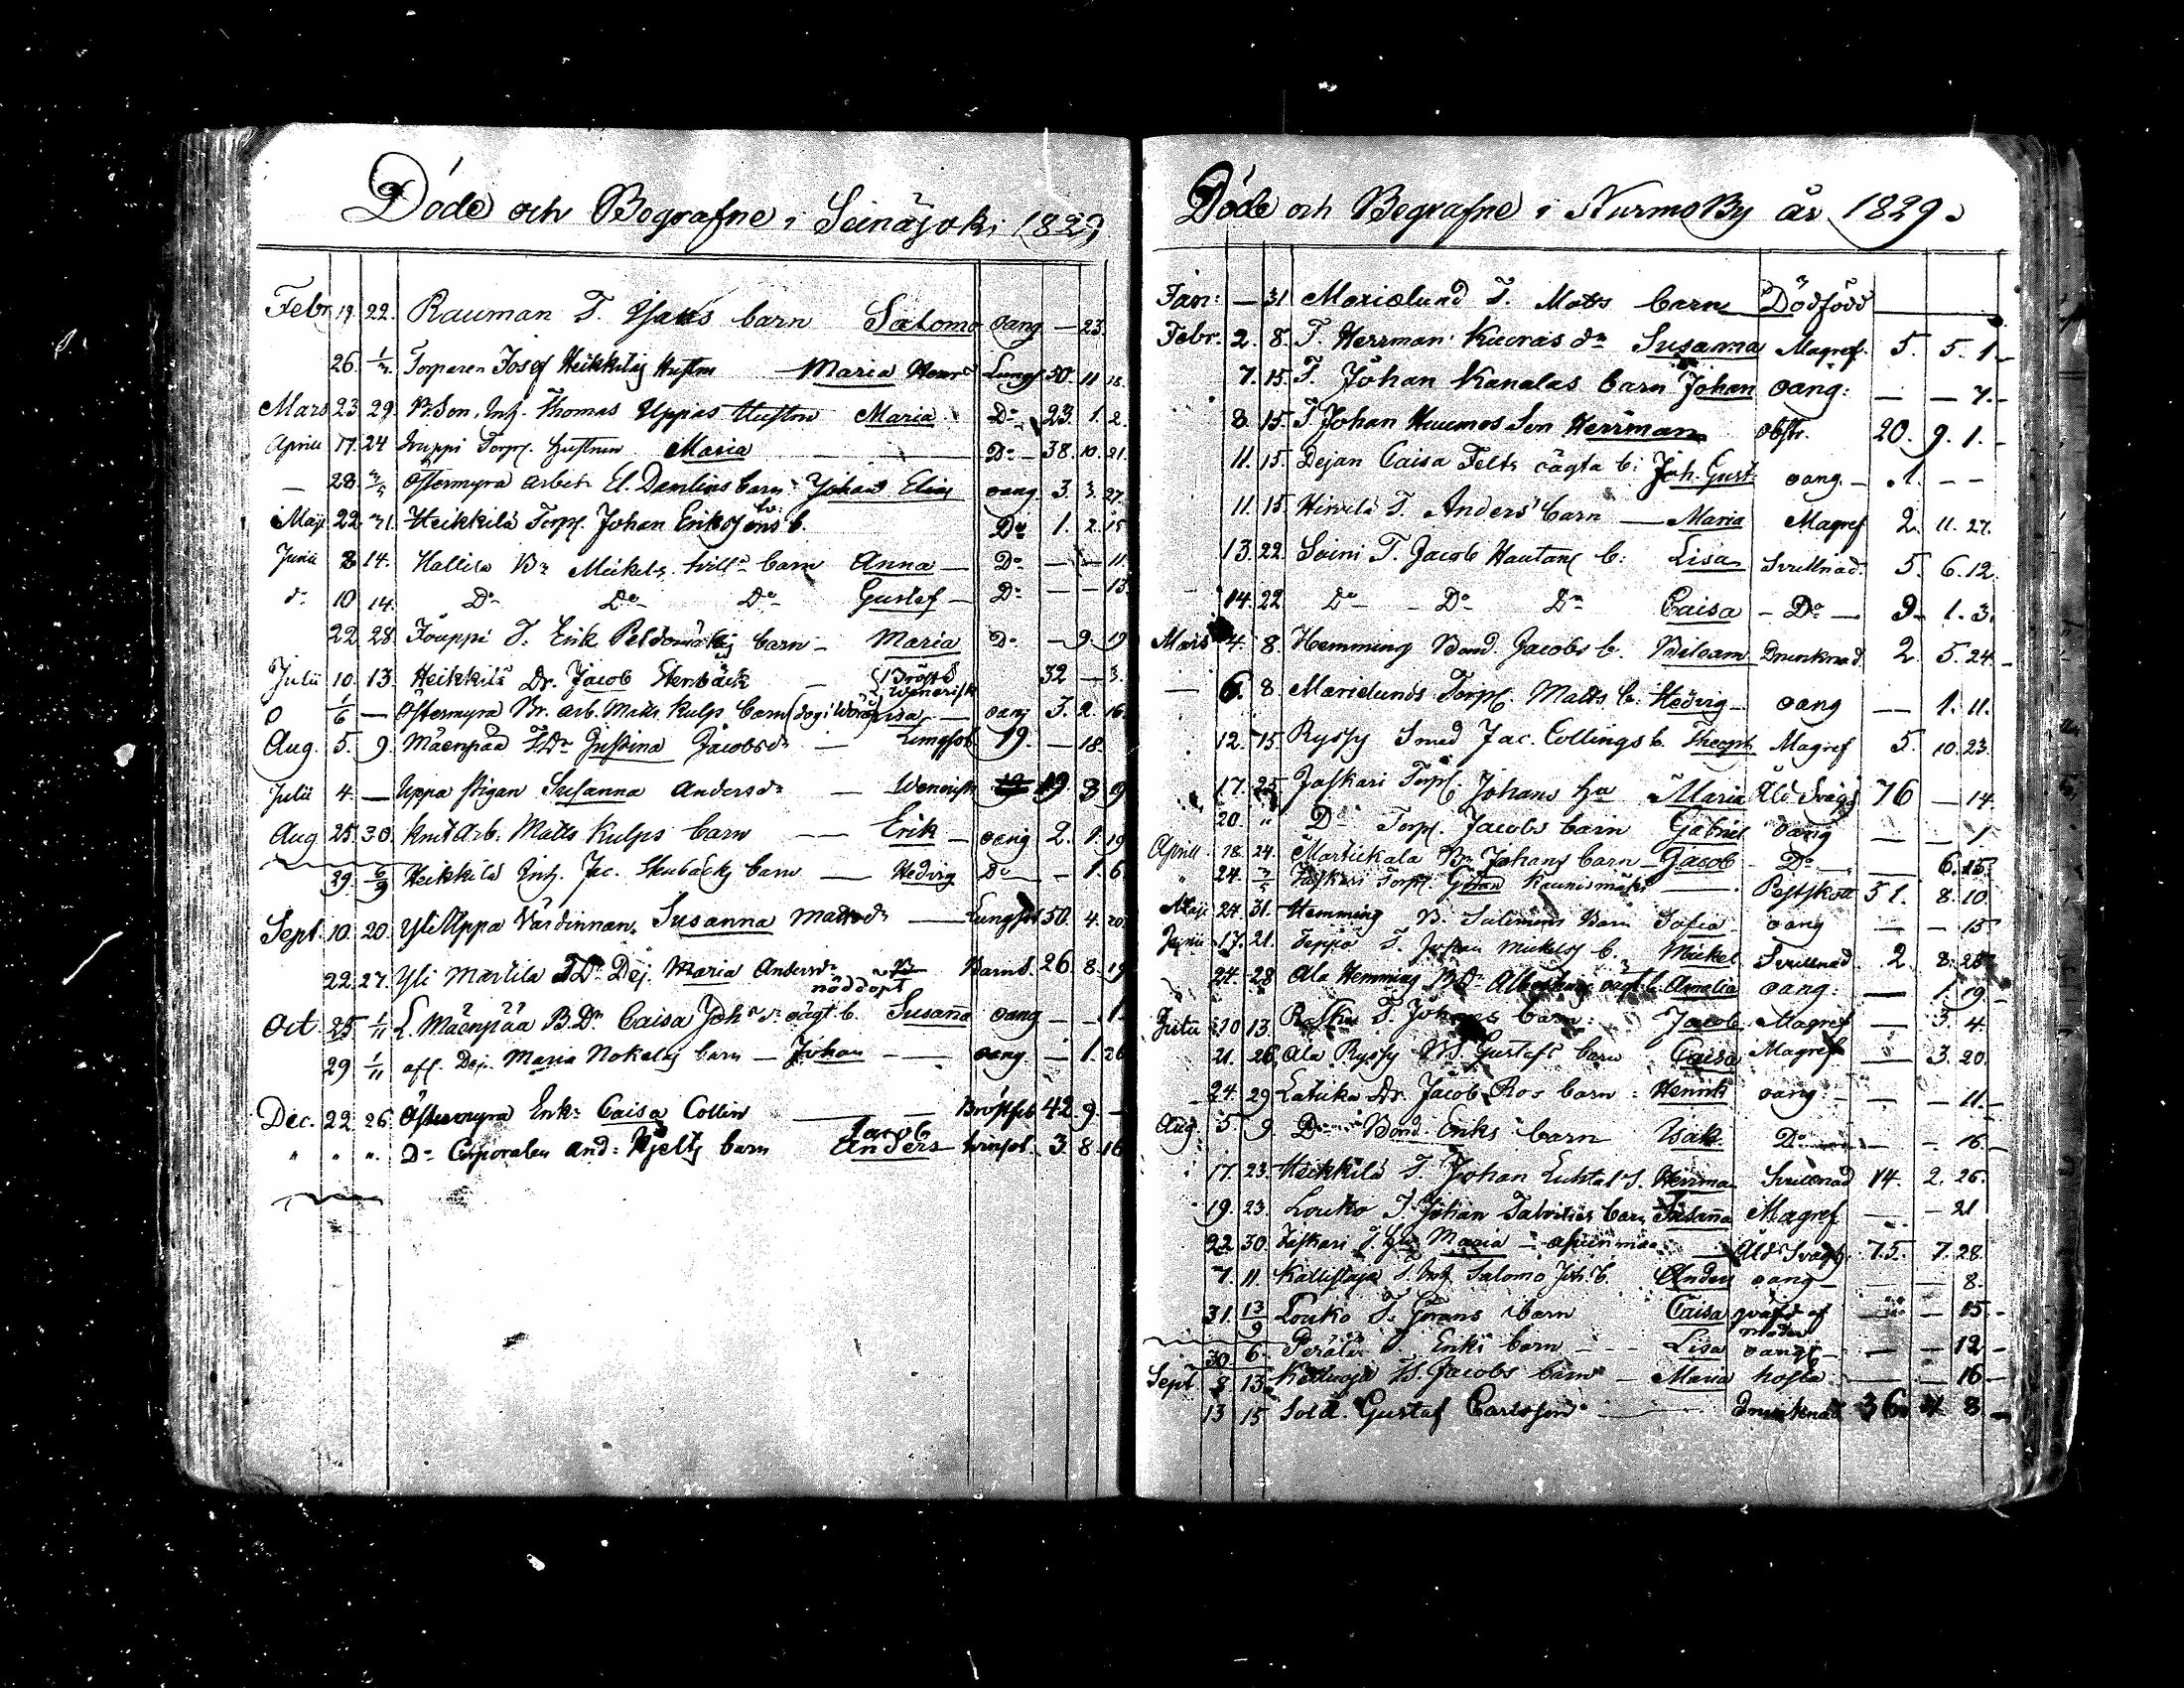 Döde och Begrafne i Seinäjoki 1829
Febr. 19. 22. Rauman T. Isaks barn Salomo oang — 23.
26. 1/3 Torparen Josef Heikkiläs Hustru Maria Henrd Lungs 50. 11 18.
Mars 23 29. B.Son, Inh. Thomas Uppas Hustru Maria Do 23. 1. 2.
Aprill 17. 24 Torp. Hustrun Maria Do 38. 10. 21.
— 28. 3/5 Östermyra arbet. El. Damlins barn Johan Elias oang. 3. 3. 27.
Maji 22 31. Heikkilä Torp. Johan Erikssons b. Do 1. 2. 15
Junii 8 14. Hallila Bn Mickels barn Anna — Do — — 11.
do 10 14. Do Do Do Gustef — Do — — 13.
22 28. Jouppi T. Erik Peldomäkis barn — Maria Do — 9. 19
Julii 10. 13. Heikkilä Dr. Jacob Stenbäck — Bröstf Wenerisk 32 — 3.
1/6 — Östermyra Br. arb. Matts Kulps barn Lisa — oang 3. 2. 16.
Aug. 5. 9. Mäenpää TDr Justina Jacobsdr — Lungsot 19. — 18.
Julii 4. — Uppa stigan Susanna Andersdr — Wenerisk 19 3 9
Aug 25. 30. Knif Arb. Matts Kulps barn — — Erik — oang 2. 1. 19
29. 6/9 Heikkilä Inh. Jac. Stenbäcks barn — Hedvig Do — — 1. 6.
Sept. 10. 20. Yli Uppa Värdinnan. Susanna Mattsdr — Lungsot 50. 4. 20
22. 27. Yli Martila TDr Dej. Maria Andersdr — Barns. 26 8. 19
nöddöpt
Oct 25 1/11 L. Mäenpää B.Dr Caisa Johsdr oägt b. Susaña oang — — 1.
29 1/11 afl. Dej. Maria Nokelas barn — Johan — — oang. — 1. 26
Dec. 22. 26. Östermyra Enk. Caisa Collin — — Bröstsot 42 9. —
Jacob
" " " Do Corporalen And: Hjelts barn Anders 3. 8. 16
Döde och Begrafne i NurmoBy år 1829.
Jan: — 31 Marielund T. Matts barn Dödfödd
Febr. 2. 8. T. Herrman Kuoras dr Susanna Magref. 5. 5. 1
7. 15. T. Johan Kanalas barn Johan oang: — — 7.
8. 15. T Johan Huumos Son Herrman obstr. 20. 9. 1.
11. 15. Dejan Caisa Felts oägta b: Joh. Gust: oang. — 1. — —
11. 15 Hirvilä T. Anders barn — Maria Magref 2. 11. 27.
13. 22. Soini T. Jacob Hautans b: Lisa Svullnad. 5. 6. 12.
14. 22 Do — Do Do Caisa — Do — 9. 1. 3.
Mars 4. 8. Hemming Bond. Jacobs b. Bileam Drunknad. 2. 5. 24.
— 6. 8. Marielunds Torp. Matts b. Hedvig — oang — 1. 11.
12. 15. Ryssy Smed Jac. Collings b. Theoph Magref 5. 10. 23.
17. 25 Jaskari Torp. Johans hu Maria Åld Svagh 76 — 14.
20. " Do Torp. Jacobs barn Gabriel oang — — 1
Aprill 18. 24. Martikala Bn Johans barn — Jacob — Do — 6. 15.
24. 3/5 Jaskari Torp. Göran Kaunismäki — 51. 8. 10.
Maji 24 31. Hemming B. Salomons barn Sofia oang — — 15
Junii 17. 21. Seppä T. Johan Mickels b. Mickel Svullnad 2. 8. 28
24. 28 Ala Hemming BDr oägt b. Amalia oang: — 1. 19
Julii 10 13. T. Johans barn: Jacob Magref — 3. 4.
21. 26. Ala Ryssy B. Gustafs barn Caisa Magref — 3. 20.
24. 29 Latuka Dr. Jacob Ros barn: Henrik oang: — — 11.
Aug 5 9 Do Bond. Eriks barn Isak Do — — 16.
17. 23. Heikkilä T. Johan Luhtal S. Herrman Svullnad 14. 2. 26.
19. 23. Louko T. Johan Talvities barn Susaña Magref — — 21
22 30. Jaskari T. hu Maria — — Åld Svagh 75. 7. 28.
7. 11. Kallistaja T. Inh Salomo Joh. b. Anders oang — — 8.
31. 13/9 Louko T. Görans barn Caisa qväfd af — — 15.
modren
30. 6. Perälä T. Eriks barn — — Lisa oang — — — 12
Sept 8 13. B. Jacobs barn — Maria hosta — — 16
13 15 Sold. Gustaf Carlsson — Drunknad 36. 4 8